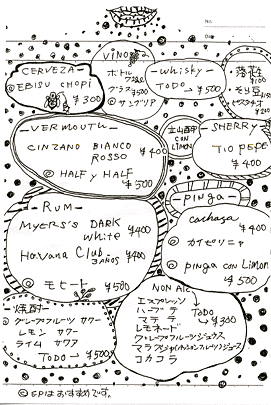 No.
CERVEZA
◎ EBISU CHOPI
¥300
VINO
ボトル
グラス
¥500
◎ サングリア
Whisky
TODO → ¥500
・落花生
¥100
・そら豆
VERMOUTH
CINZANO BIANCO
ROSSO
¥400
◎ HALF y HALF
¥500
CON
LIMON
SHERRY
TIO PEPE
¥400
RUM
MYERS'S DARK
White
¥400
Havana Club
3AÑOS
¥400
◎ モヒート ¥500
Pinga
cachaça
¥400
◎ カイピリニャ
◎ pinga con Limon
¥500
焼酎
◎ グレープフルーツ サワー
レモン サワー
ライム サワア
TODO → ¥500
NON Alc
エスプレッソ
ハーブテ
マテ
レモネード
TODO
→ ¥300
グレープフルーツジュウス
コカコラ
◎ EPIはおすすめです。